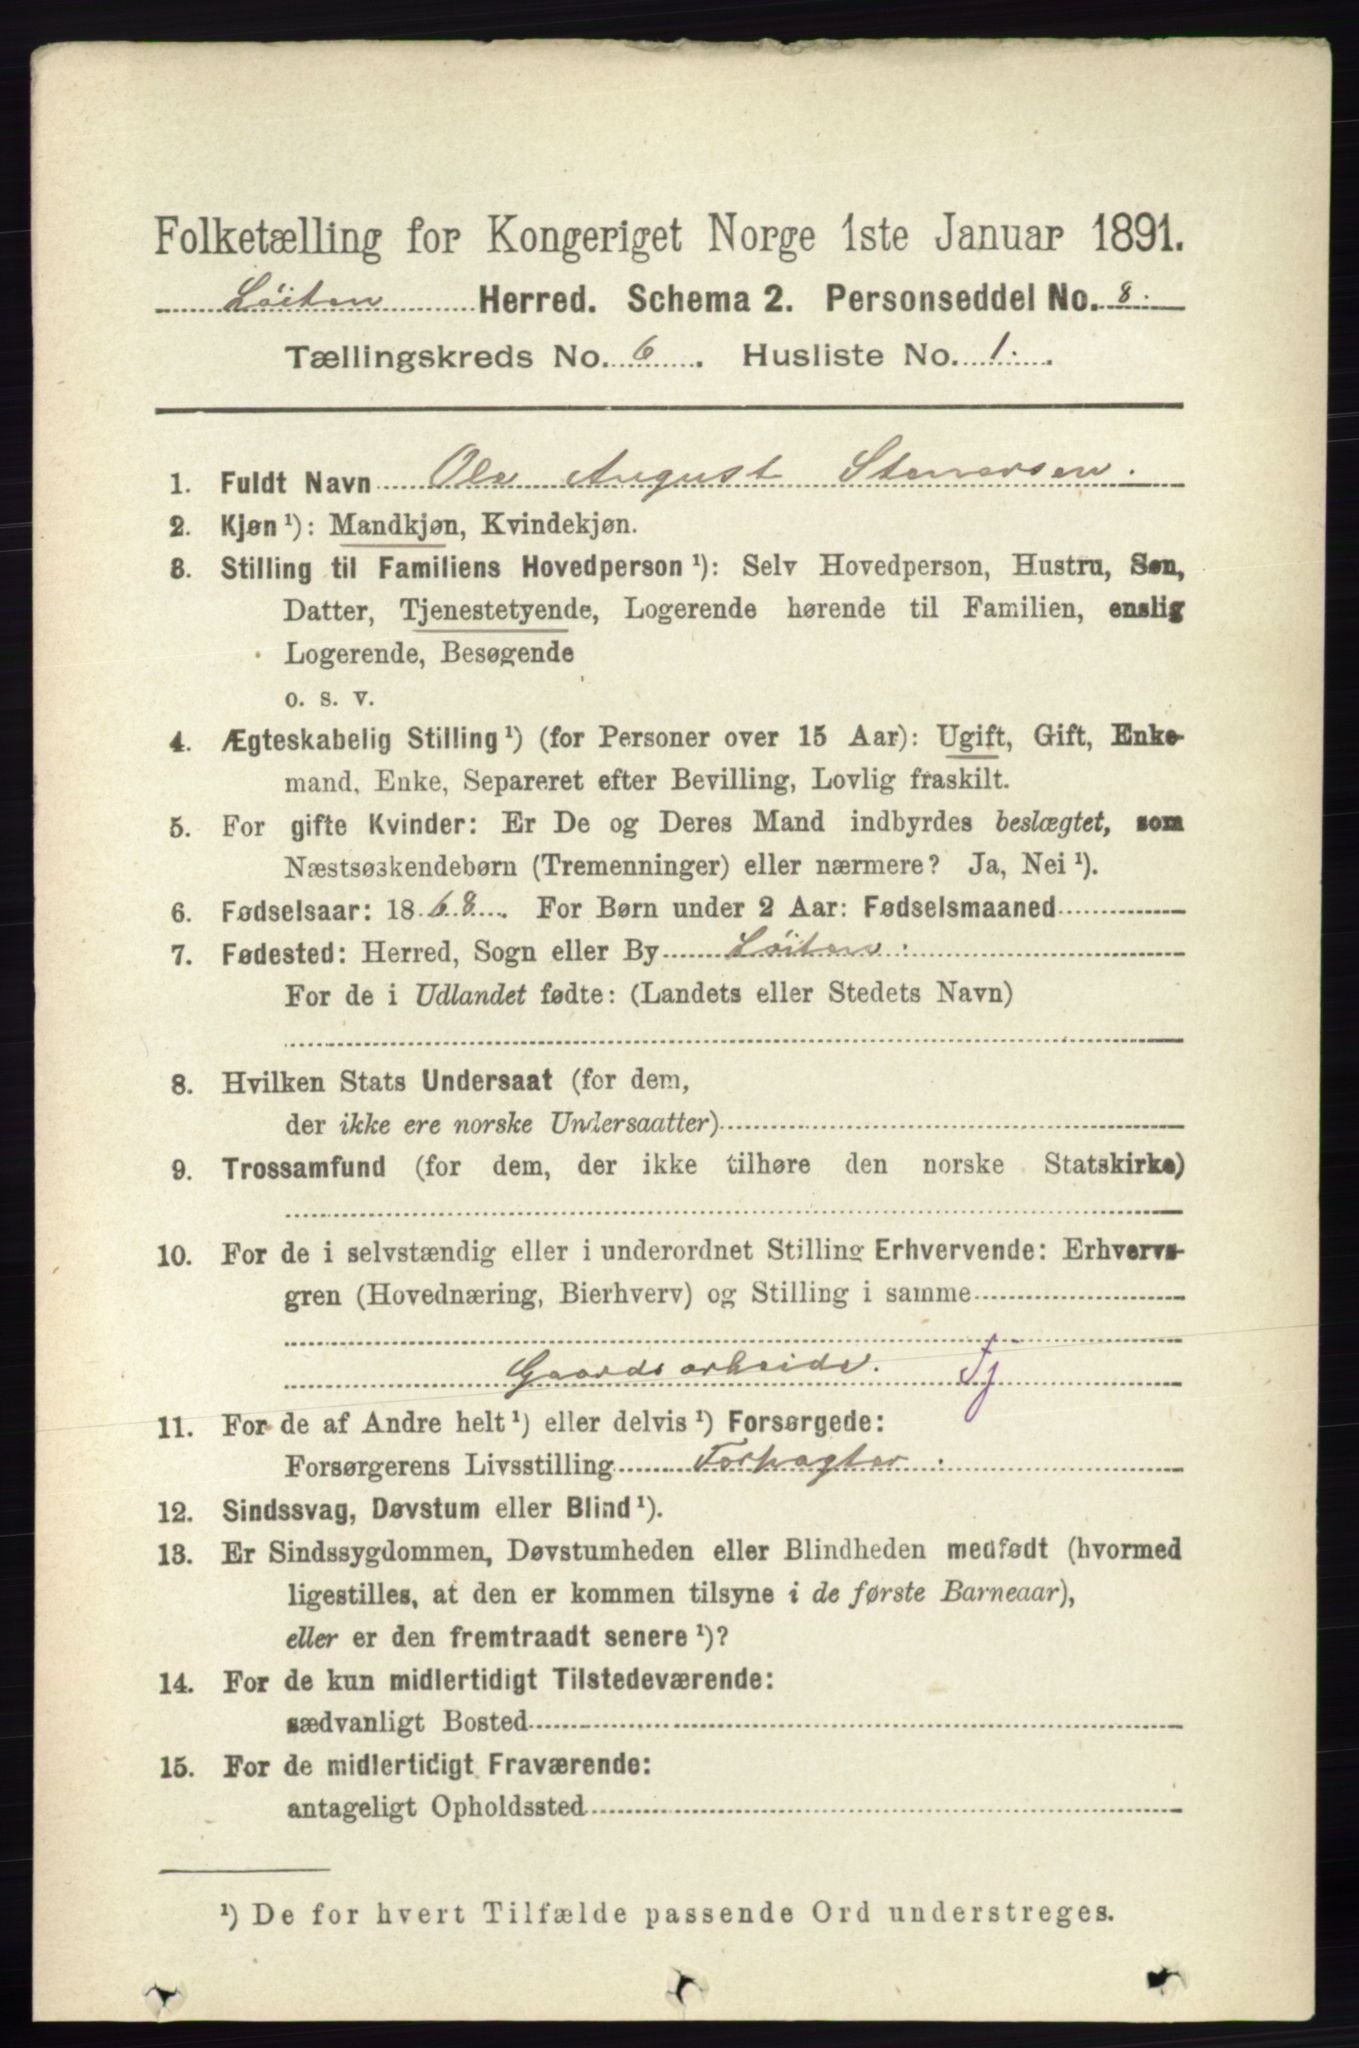 Folketælling for Kongeriget Norge 1ste Januar 1891.
Löiten Herred. Schema 2. Personseddel No. 8.
Tællingskreds No. 6. Husliste No. 1.
1. Fuldt Navn Ole August Stenersen.
2. Kjøn¹): Mandkjøn, Kvindekjøn.
3. Stilling til Familiens Hovedperson¹): Selv Hovedperson, Hustru, Søn,
Datter, Tjenestetyende, Logerende hørende til Familien, enslig
Logerende, Besøgende
o. s. v.
4. Ægteskabelig Stilling¹) (for Personer over 15 Aar): Ugift, Gift, Enke-
mand, Enke, Separeret efter Bevilling, Lovlig fraskilt.
5. For gifte Kvinder: Er De og Deres Mand indbyrdes beslægtet, som
Næstsøskendebørn (Tremenninger) eller nærmere? Ja, Nei¹).
6. Fødselsaar: 1868. For Børn under 2 Aar: Fødselsmaaned
7. Fødested: Herred, Sogn eller By Löiten.
For de i Udlandet fødte: (Landets eller Stedets Navn)
8. Hvilken Stats Undersaat (for dem,
der ikke ere norske Undersaatter)
9. Trossamfund (for dem, der ikke tilhøre den norske Statskirke)
10. For de i selvstændig eller i underordnet Stilling Erhvervende: Erhvervs-
gren (Hovednæring, Bierhverv) og Stilling i samme
Gaardsarbeide. Tj
11. For de af Andre helt¹) eller delvis¹) Forsørgede:
Forsørgerens Livsstilling Forpagter.
12. Sindssvag, Døvstum eller Blind¹).
13. Er Sindssygdommen, Døvstumheden eller Blindheden medfødt (hvormed
ligestilles, at den er kommen tilsyne i de første Barneaar),
eller er den fremtraadt senere¹)?
14. For de kun midlertidigt Tilstedeværende:
sædvanligt Bosted
15. For de midlertidigt Fraværende:
antageligt Opholdssted
¹) De for hvert Tilfælde passende Ord understreges.